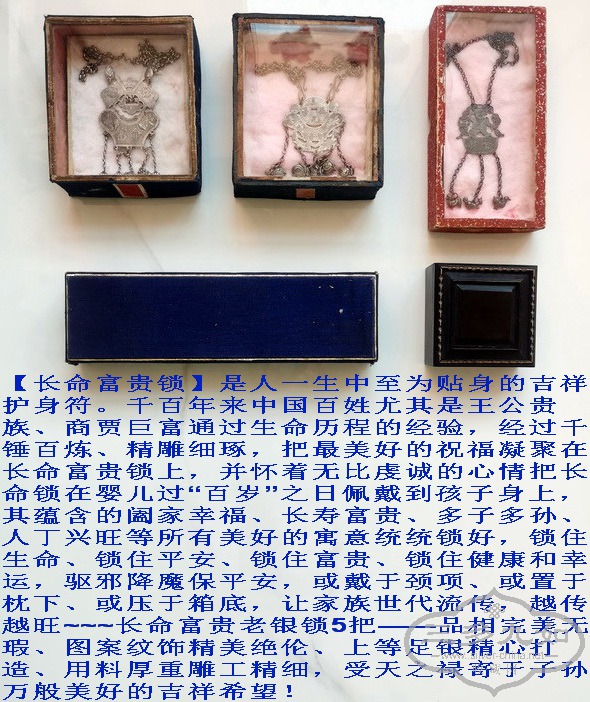 【长命富贵锁】是人一生中至为贴身的吉祥
护身符。千百年来中国百姓尤其是王公贵
族、商贾巨富通过生命历程的经验，经过千
锤百炼、精雕细琢，把最美好的祝福凝聚在
长命富贵锁上，并怀着无比虔诚的心情把长
命锁在婴儿过“百岁”之日佩戴到孩子身上，
其蕴含的阖家幸福、长寿富贵、多子多孙、
人丁兴旺等所有美好的寓意统统锁好，锁住
生命、锁住平安、锁住富贵、锁住健康和幸
运，驱邪降魔保平安，或戴于颈项、或置于
枕下、或压于箱底，让家族世代流传，越传
越旺~~~长命富贵老银锁5把——品相完美无
瑕、图案纹饰精美绝伦、上等足银精心打
造、用料厚重雕工精细，受天之禄寄于子孙
万般美好的吉祥希望！